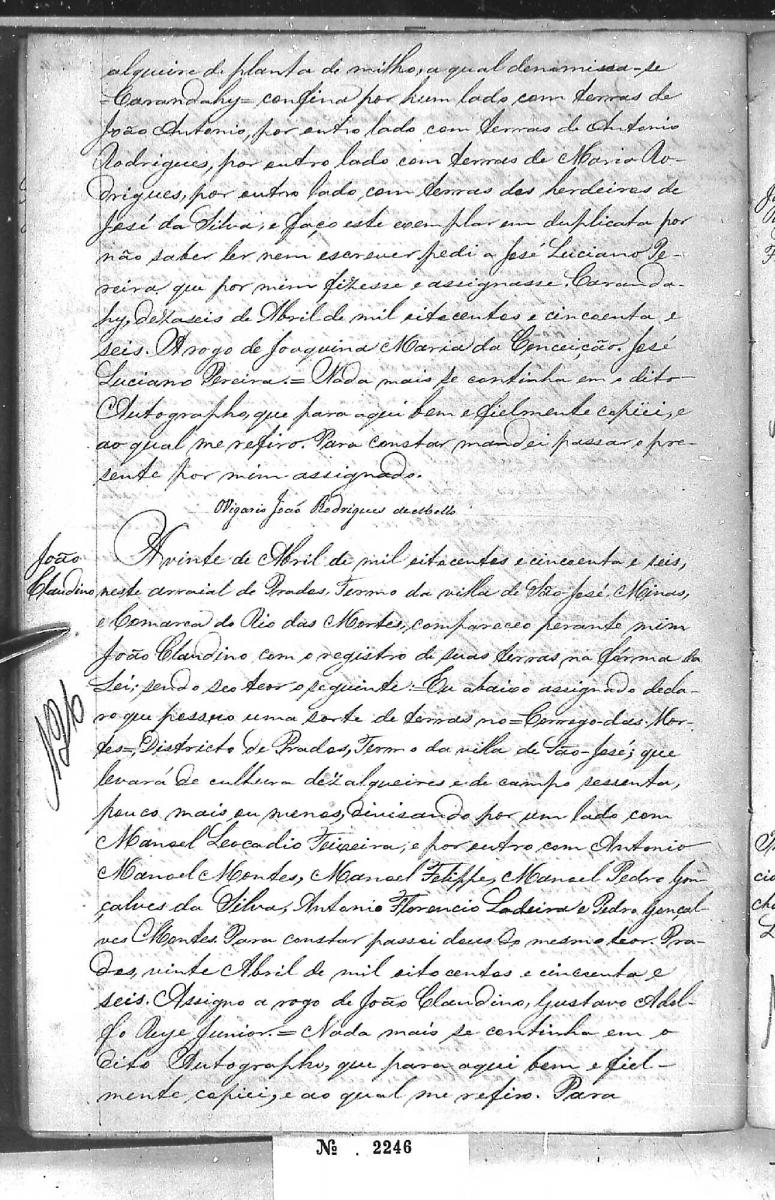 alqueire de planta de milho, a qual denomissa-se
=Carandahy= confina por hum lado com terras de
João Antonio, por outro lado com terras de Antonio
Rodrigues, por outro lado com terras de Maria Ro-
drigues, por outro lado, com terras dos herdeiros de
José da Silva; e faço este exemplar em duplicata por
não saber ler nem escrever pedi a José Luciano Pe-
reira que por mim fizesse e assignasse. Caranda-
hy, dezaseis de Abril de mil oitocentos e cincoenta e
seis. A rogo de Joaquina Maria da Conceição. José
Luciano Pereira.= Nada mais se continha em o dito
Autographo, que para aqui bem e fielmente copiei, e
ao qual me refiro. Para constar mandei passar o pre-
sente por mim assignado.
O Vigario João Rodrigues de Mello
João
Claudino
Nº 26
A vinte de Abril de mil oitocentos e cincoenta e seis,
neste arraial de Prados, Termo da villa de São José, Minas,
e Comarca do Rio das Mortes, compareceo perante mim
João Claudino com o registro de suas terras na fórma da
Lei; sendo seo teor o seguinte:= Eu abaixo assignado decla-
ro que possuo uma sorte de terras no =Corrego das Mor-
tes=, Districto de Prados, Termo da villa de São José; que
levará de cultura dez alqueires e de campo sessenta,
pouco mais ou menos, divisando por um lado com
Manoel Leocadio Teixeira; e por outro com Antonio
Manoel Montes, Manoel Felippe, Manoel Pedro Gon-
çalves da Silva, Antonio Florencio Ladeira e Pedro Gonçal-
ves Montes. Para constar passei dous do mesmo teor. Pra-
dos, vinte Abril de mil oitocentos e cincoenta e
seis. Assigno a rogo de João Claudino, Gustavo Adol-
fo Junior.= Nada mais se continha em o
dito Autographo, que para aqui bem e fiel-
mente copiei, e ao qual me refiro. Para
Nº . 2246